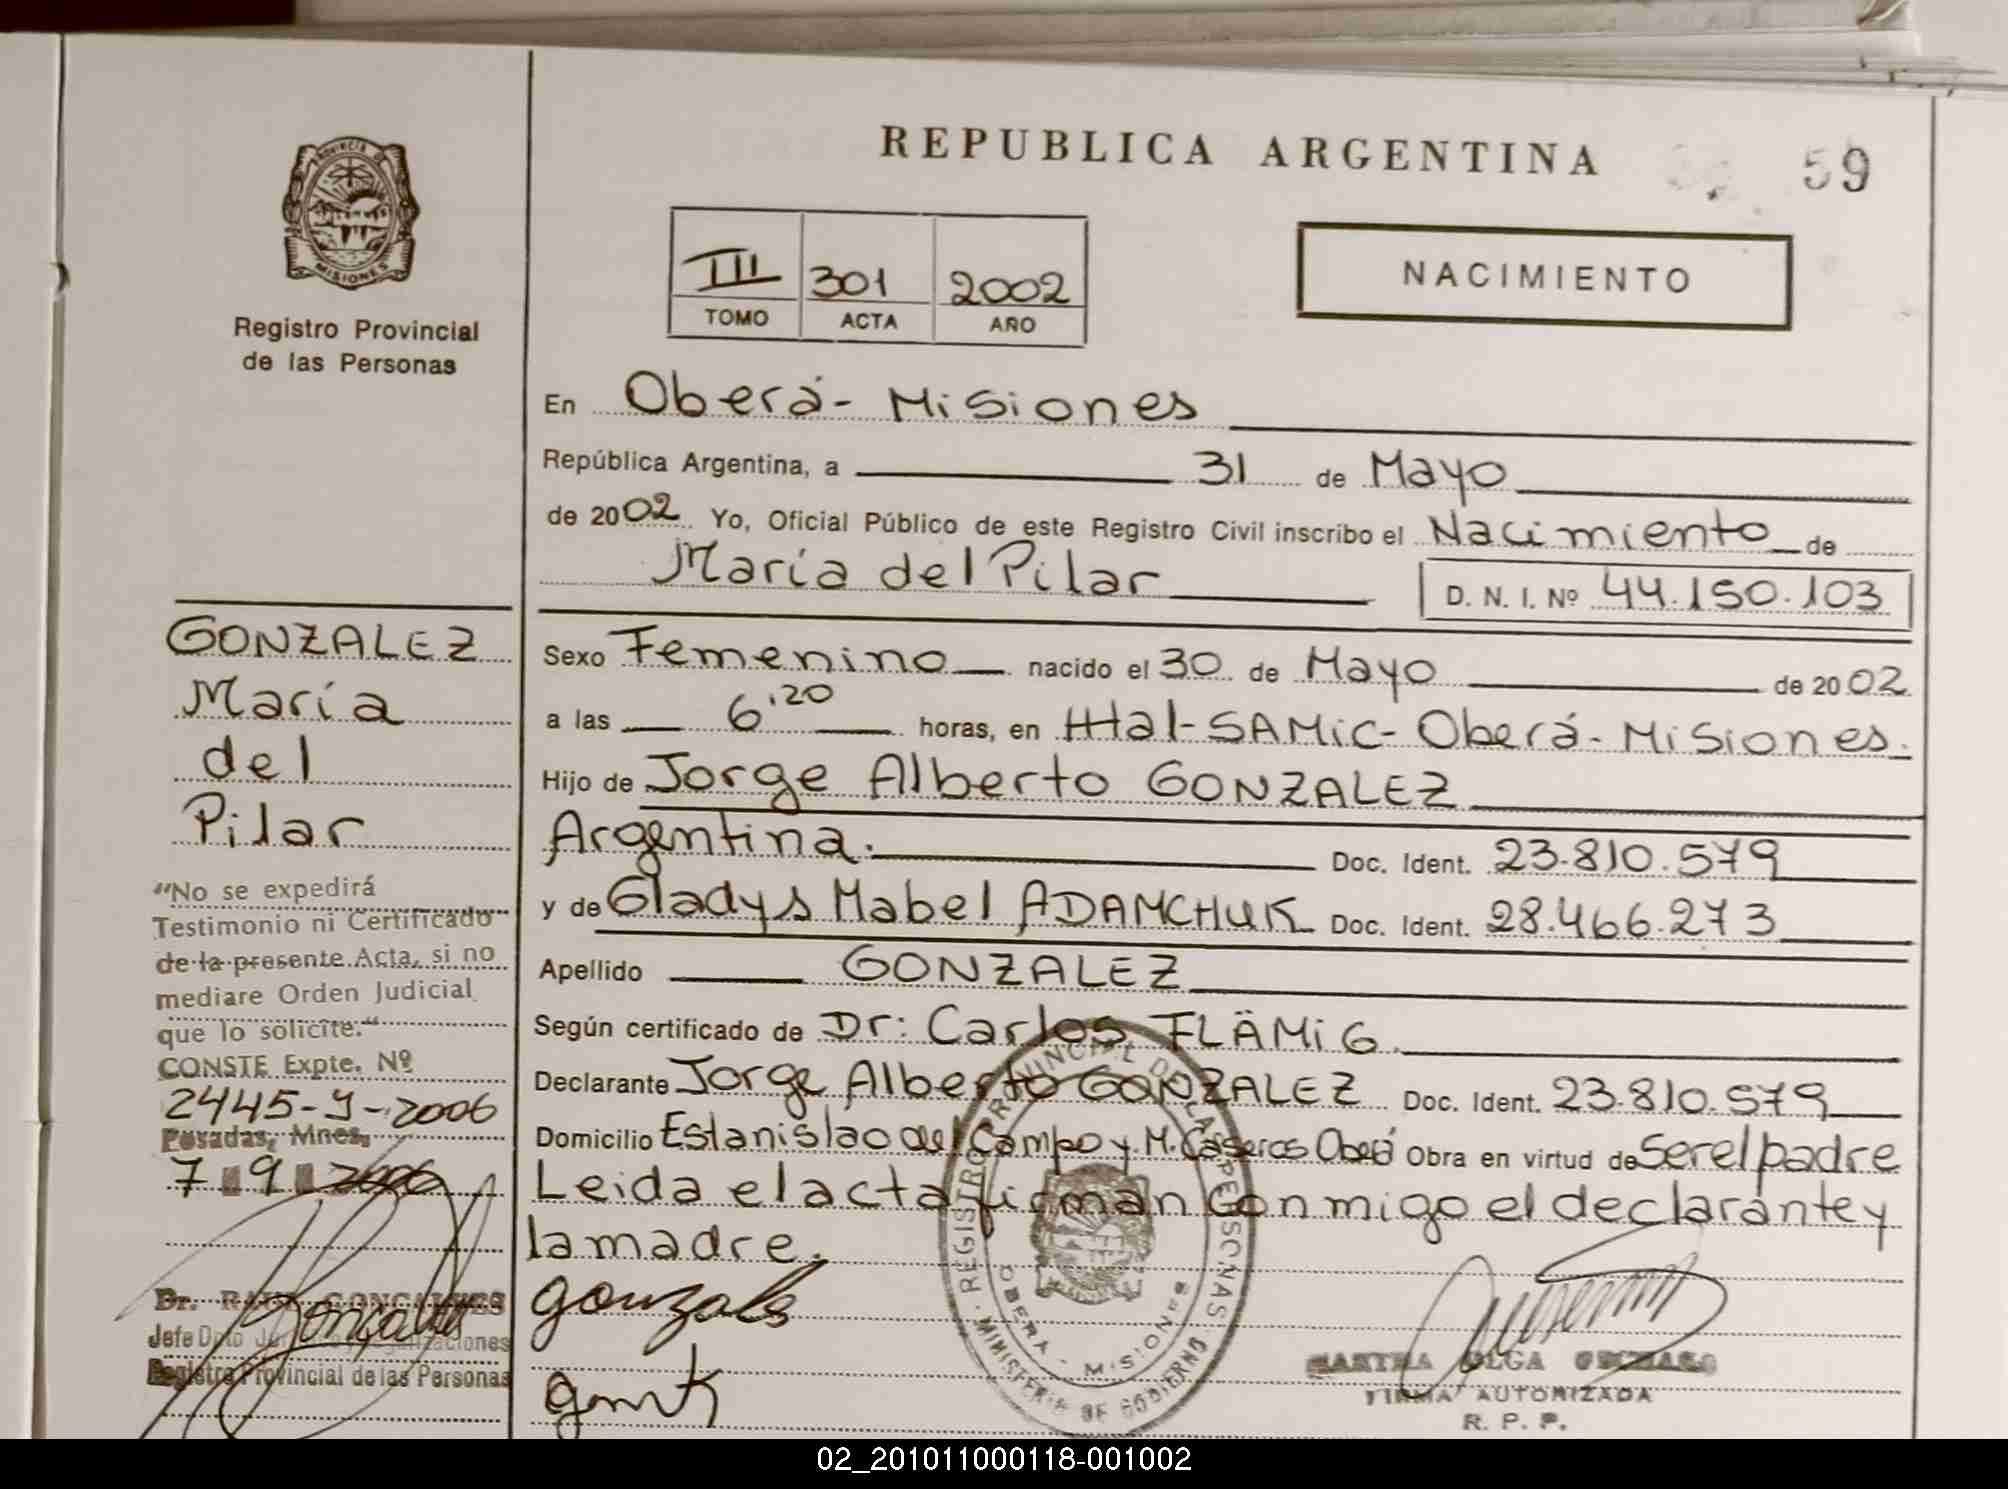 REPUBLICA ARGENTINA
59
PROVINCIA DE
MISIONES
Registro Provincial
de las Personas
III 301 2002
TOMO ACTA AÑO
NACIMIENTO
En Oberá- Misiones
República Argentina, a 31 de Mayo
de 2002 Yo, Oficial Público de este Registro Civil inscribo el Nacimiento de
María del Pilar D. N. I. Nº 44.150.103
GONZALEZ
María
del
Pilar
"No se expedirá
Testimonio ni Certificado
de la presente Acta, si no
mediare Orden Judicial
que lo solicite."
CONSTE Expte. Nº
2445-9-2006
Posadas, Mnes.
7 9 2006
Dr. RAUL GONCALVES
Jefe Dpto
Registro Provincial de las Personas
Sexo Femenino nacido el 30 de Mayo de 2002
a las 6,20 horas, en Htal-SAMiC- Oberá- Misiones.
Hijo de Jorge Alberto GONZALEZ
Argentina. Doc. Ident. 23.810.579
y de Gladys Mabel ADAMCHUK Doc. Ident. 28.466.273
Apellido GONZALEZ
Según certificado de Dr: Carlos FLÄMiG
Declarante Jorge Alberto GONZALEZ Doc. Ident. 23.810.579
Domicilio Estanislao del Campo y M. Caseros Oberá Obra en virtud de Ser el padre
Leida el acta firman conmigo el declarante y
la madre.
gonzales
REGISTRO PROVINCIAL DE LAS PERSONAS
OBERA - MISIONES
MINISTERIO DE GOBIERNO
MARTHA OLGA
FIRMA AUTORIZADA
R. P. P.
02_201011000118-001002